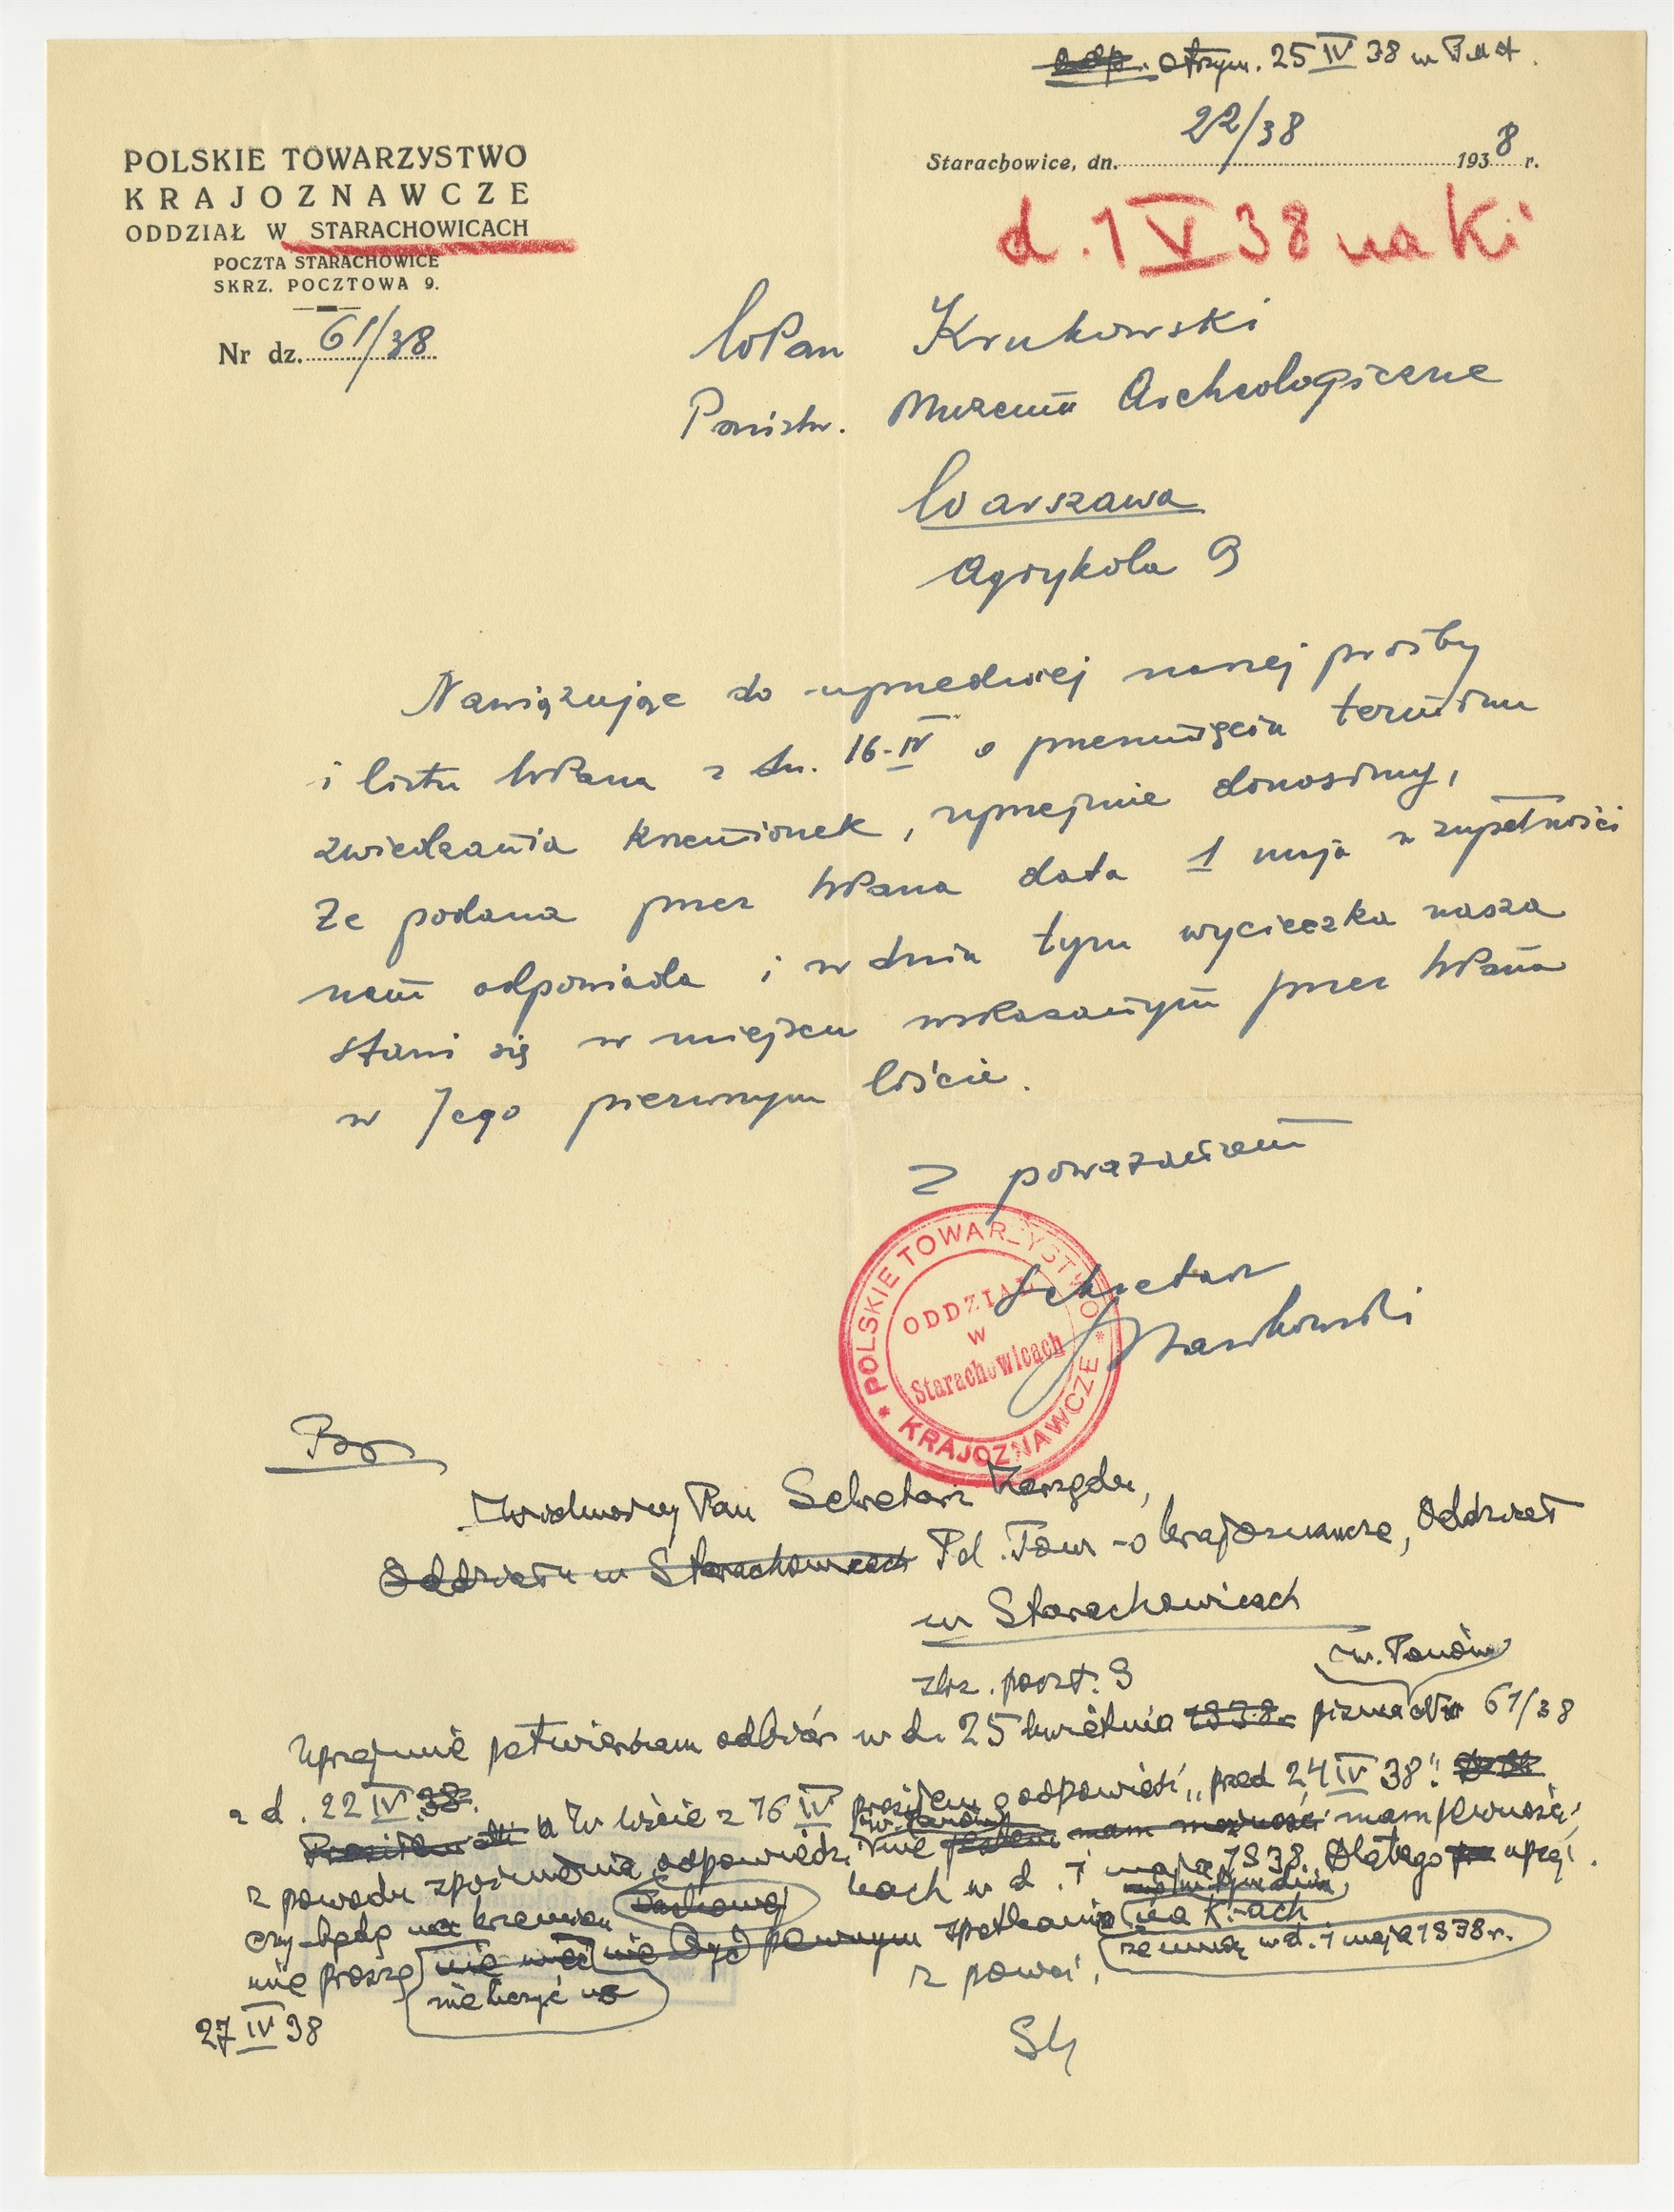 otrzym. 25 IV 38 w PMA.
POLSKIE TOWARZYSTWO
KRAJOZNAWCZE
ODDZIAŁ W STARACHOWICACH
POCZTA STARACHOWICE
SKRZ. POCZTOWA 9.
Nr dz. 61/38
Starachowice, dn. 22/38 1938 r.
d. 1 V 38 na Ki
WPan Krukowski
Państw. Muzeum Archeologiczne
Warszawa
Agrykola 9
Nawiązując do uprzedniej naszej prośby
i listu WPana z dn. 16-IV o przesunięcia terminu
zwiedzania Krzemionek, uprzejmie donosimy,
że podana przez WPana data 1 maja w zupełności
nam odpowiada i w dniu tym wycieczka nasza
stawi się w miejscu wskazanym przez WPana
w Jego pierwszym liście.
Z poważaniem
Sekretarz
POLSKIE TOWARZYSTWO * KRAJOZNAWCZE *
ODDZIAŁ
W
Starachowicach
Pan Sekretarz Zarządu,
Oddziału w Starachowicach Pol. Tow-o Krajoznawcze, Oddział
w Starachowicach
poczt. 9
w. Panów
Uprzejmie potwierdzam odbiór w d. 25 kwietnia 1938 r. pisma Nr 61/38
z d. 22 IV 38.
W liście z 16 IV prosiłem o odpowiedź „przed 24 IV 38".
z powodu spóźnienia odpowiedzi w. Panów nie jestem mam możność mam pewność,
czy będę na krzemionkach w d. 1 maja 1938. Dlatego uprzej.
mie proszę nie być pewnym spotkania na K.-ach
nie liczyć na
ze mną w d. 1 maja 1938 r.
z poważ.
27 IV 38
SK